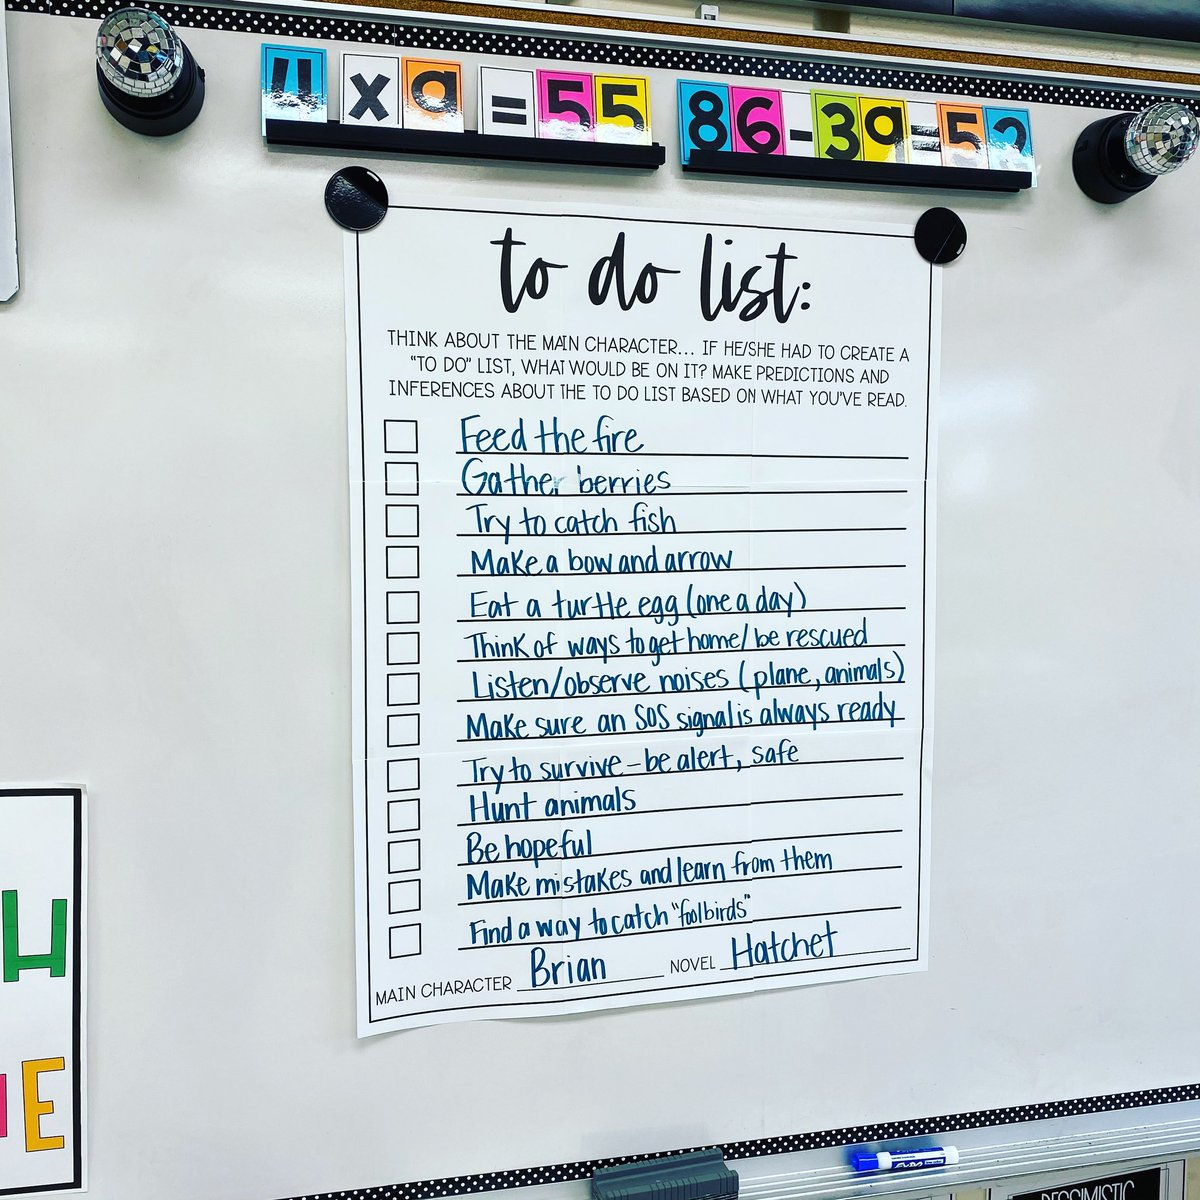 4 x 9 = 55
86-39=52
to do list:
THINK ABOUT THE MAIN CHARACTER... IF HE/SHE HAD TO CREATE A
"TO DO" LIST, WHAT WOULD BE ON IT? MAKE PREDICTIONS AND
INFERENCES ABOUT THE TO DO LIST BASED ON WHAT YOU'VE READ.
Feed the fire
Gather berries
Try to catch fish
Make a bow and arrow
Eat a turtle egg (one a day)
Think of ways to get home/be rescued
Listen/observe noises (plane, animals)
Make sure an SOS signal is always ready
Try to survive - be alert, safe
Hunt animals
Be hopeful
Make mistakes and learn from them
Find a way to catch "foolbirds"
MAIN CHARACTER Brian NOVEL Hatchet
E
EXPO